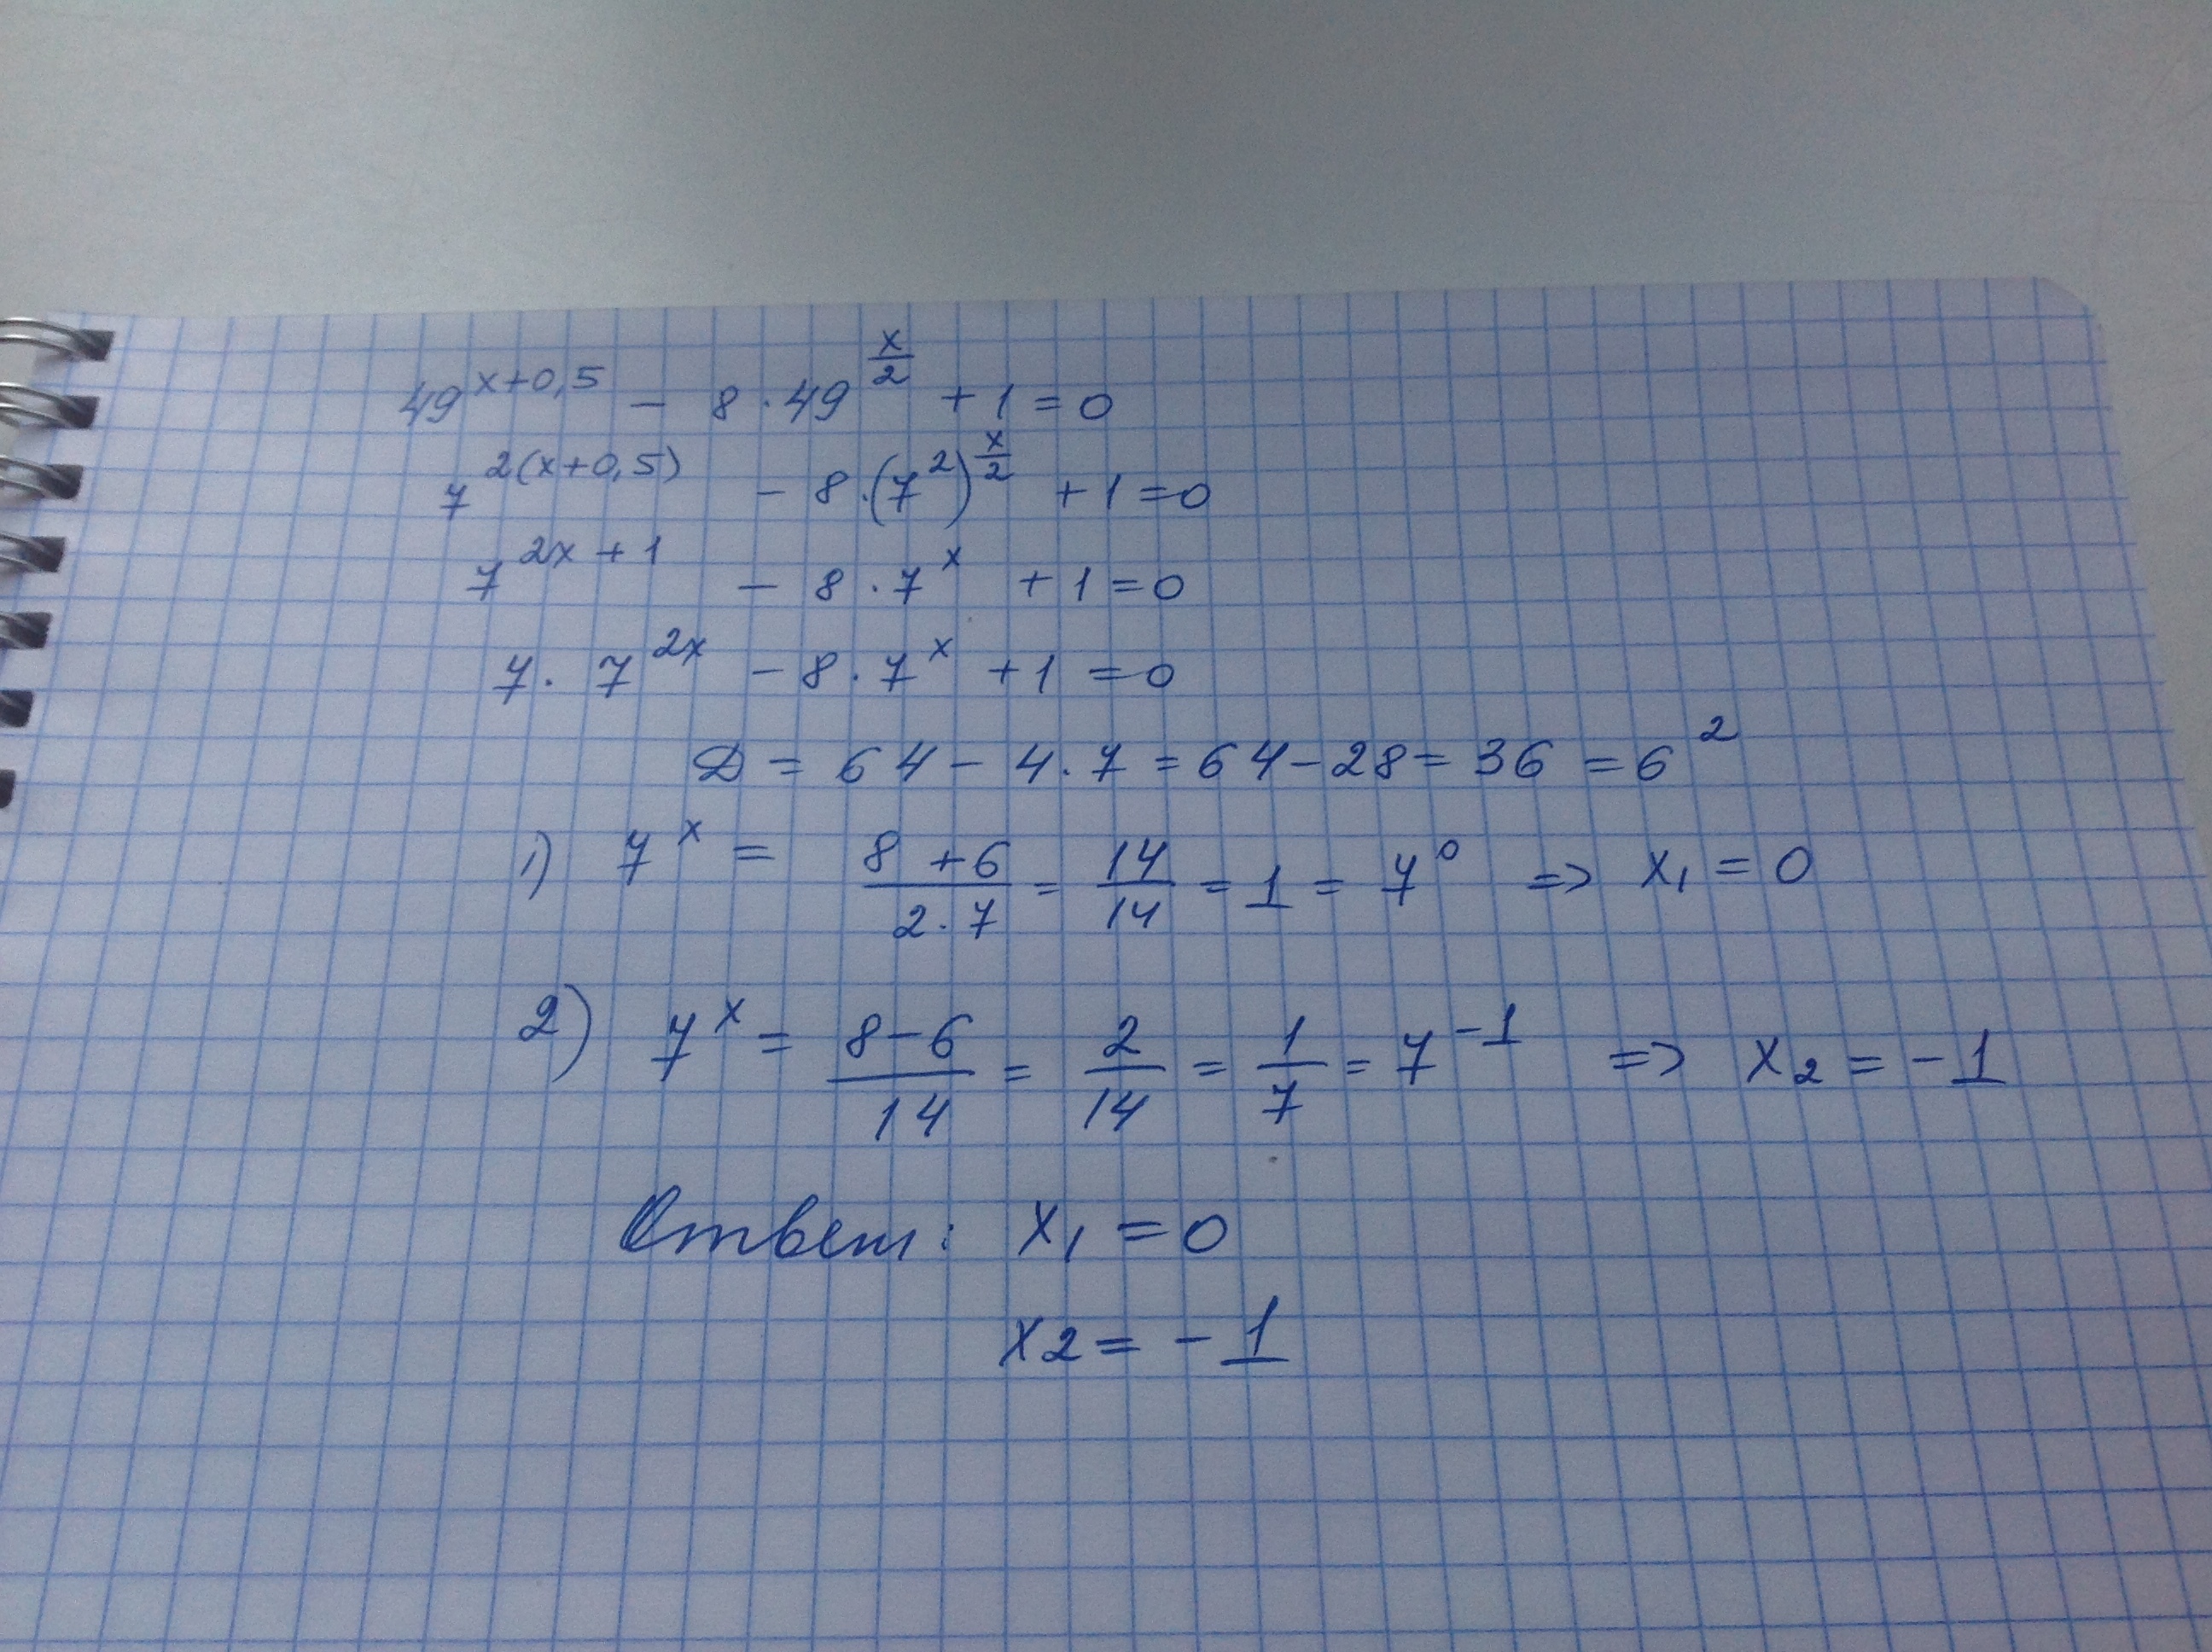 49^(x+0,5) - 8·49^(x/2) + 1 = 0
7^(2(x+0,5)) - 8·(7^2)^(x/2) + 1 = 0
7^(2x+1) - 8·7^x + 1 = 0
7·7^(2x) - 8·7^x + 1 = 0
D = 64 - 4·7 = 64 - 28 = 36 = 6^2
1) 7^x = (8+6)/(2·7) = 14/14 = 1 = 7^0 => x₁ = 0
2) 7^x = (8-6)/14 = 2/14 = 1/7 = 7^(-1) => x₂ = -1
Ответ: x₁ = 0
x₂ = -1